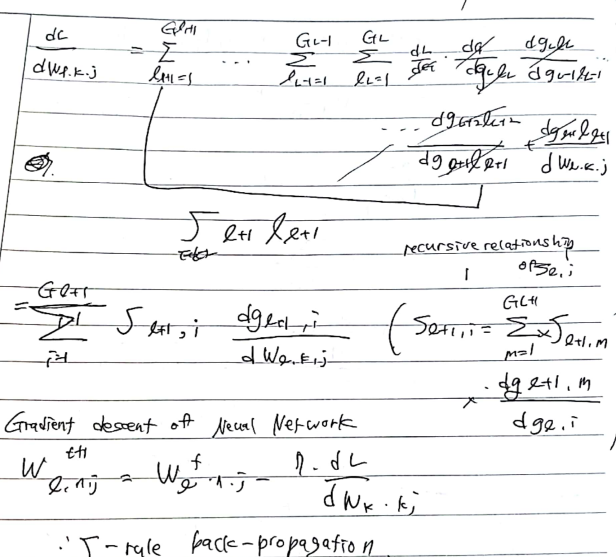 dL/dWl.k.j = Σ_{ll+1=1}^{Gl+1} ... Σ_{lL-1=1}^{GL-1} Σ_{lL=1}^{GL} dL/dg · dg/dgLlL dgLlL/dgL-1lL-1
... dgl+2ll+2/dgl+1ll+1 + dgl+1ll+1/dWl.k.j
δ l+1 ll+1
recursive relationship
of δl,i
= Σ_{i=1}^{Gl+1} δl+1,i dgl+1,i/dWl.k,j ( δl+1,i = Σ_{m=1}^{GL+1} × δl+1,m
× · dgl+1.m/dgl,i
Gradient descent of Neural Network
W^{t+1}_{l,1,j} = W^{t}_{l.1.j} - η.dL/dWk.kj
∴ δ-rule back-propagation